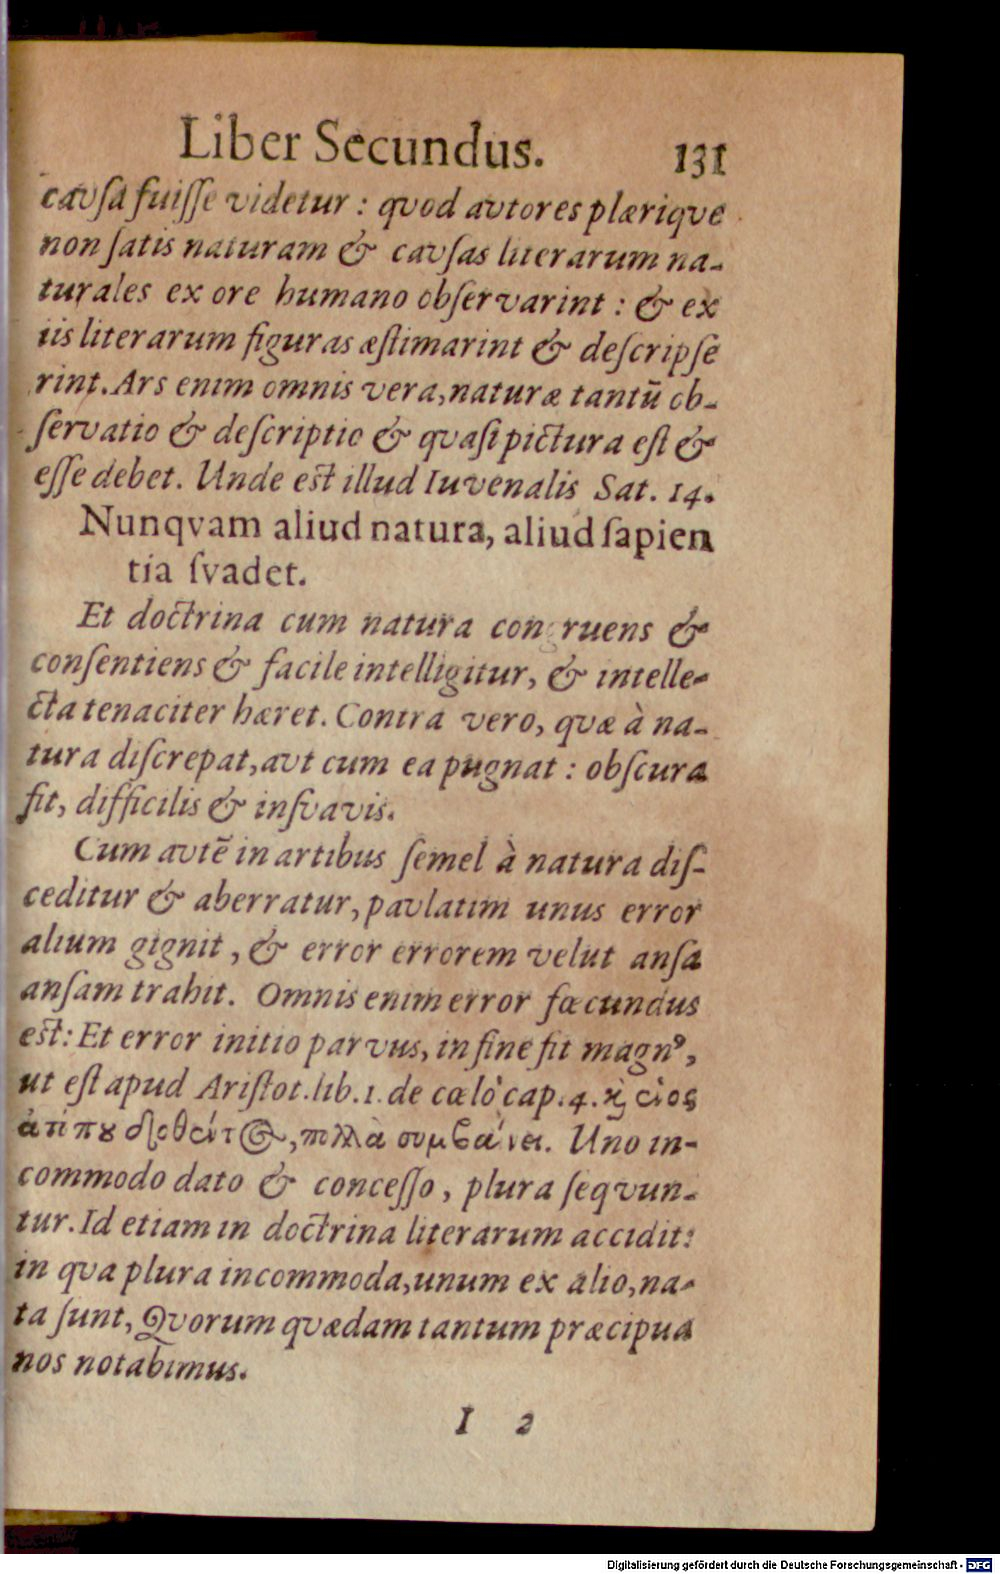 Liber Secundus. 131
cavsa fuiſſe videtur : qvod avtores plæriqve
non ſatis naturam & cavſas literarum na-
turales ex ore humano obſervarint : & ex
iis literarum figuras æſtimarint & deſcripſe
rint. Ars enim omnis vera, naturæ tantū ob-
ſervatio & deſcriptio & qvaſi pictura eſt &
eſſe debet. Unde est illud Iuvenalis Sat. 14.
Nunqvam aliud natura, aliud ſapien
tia ſvadet.
Et doctrina cum natura congruens &
conſentiens & facile intelligitur, & intelle-
cta tenaciter hæret. Contra vero, qvæ à na-
tura diſcrepat, avt cum ea pugnat : obſcura
fit, difficilis & inſvavis.
Cum avtē in artibus ſemel à natura diſ-
ceditur & aberratur, pavlatim unus error
alium gignit, & error errorem velut anſa
anſam trahit. Omnis enim error fœcundus
est: Et error initio parvus, in fine fit magnꝰ,
ut eſt apud Ariſtot. lib. 1. de cœlo cap. 4. ϗ
πολλὰ συμβαίνει. Uno in-
commodo dato & conceſſo, plura ſeqvun-
tur. Id etiam in doctrina literarum accidit:
in qva plura incommoda, unum ex alio, na-
ta ſunt, Qvorum qvædam tantum præcipua
nos notabimus.
I 2
Digitalisierung gefördert durch die Deutsche Forschungsgemeinschaft - DFG